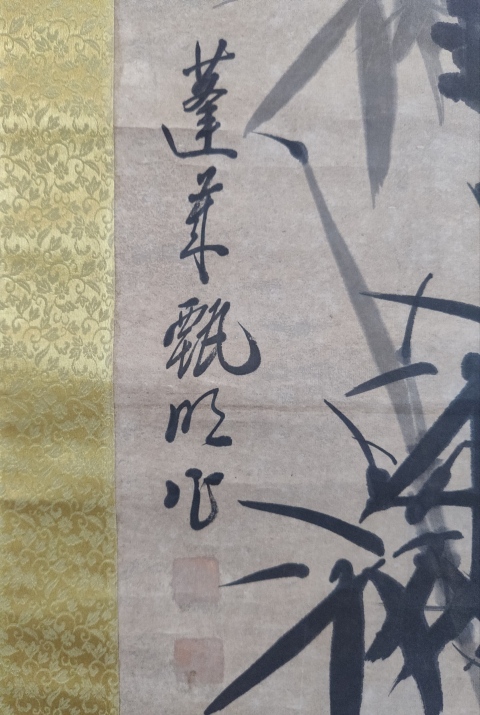 蓬莱甄明作